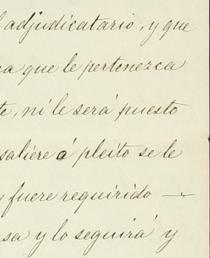 adjudicatario, y que
que le pertenezca
te, ni le será puesto
saliere á pleito se le
y fuere requirido —
sa y lo seguirá y